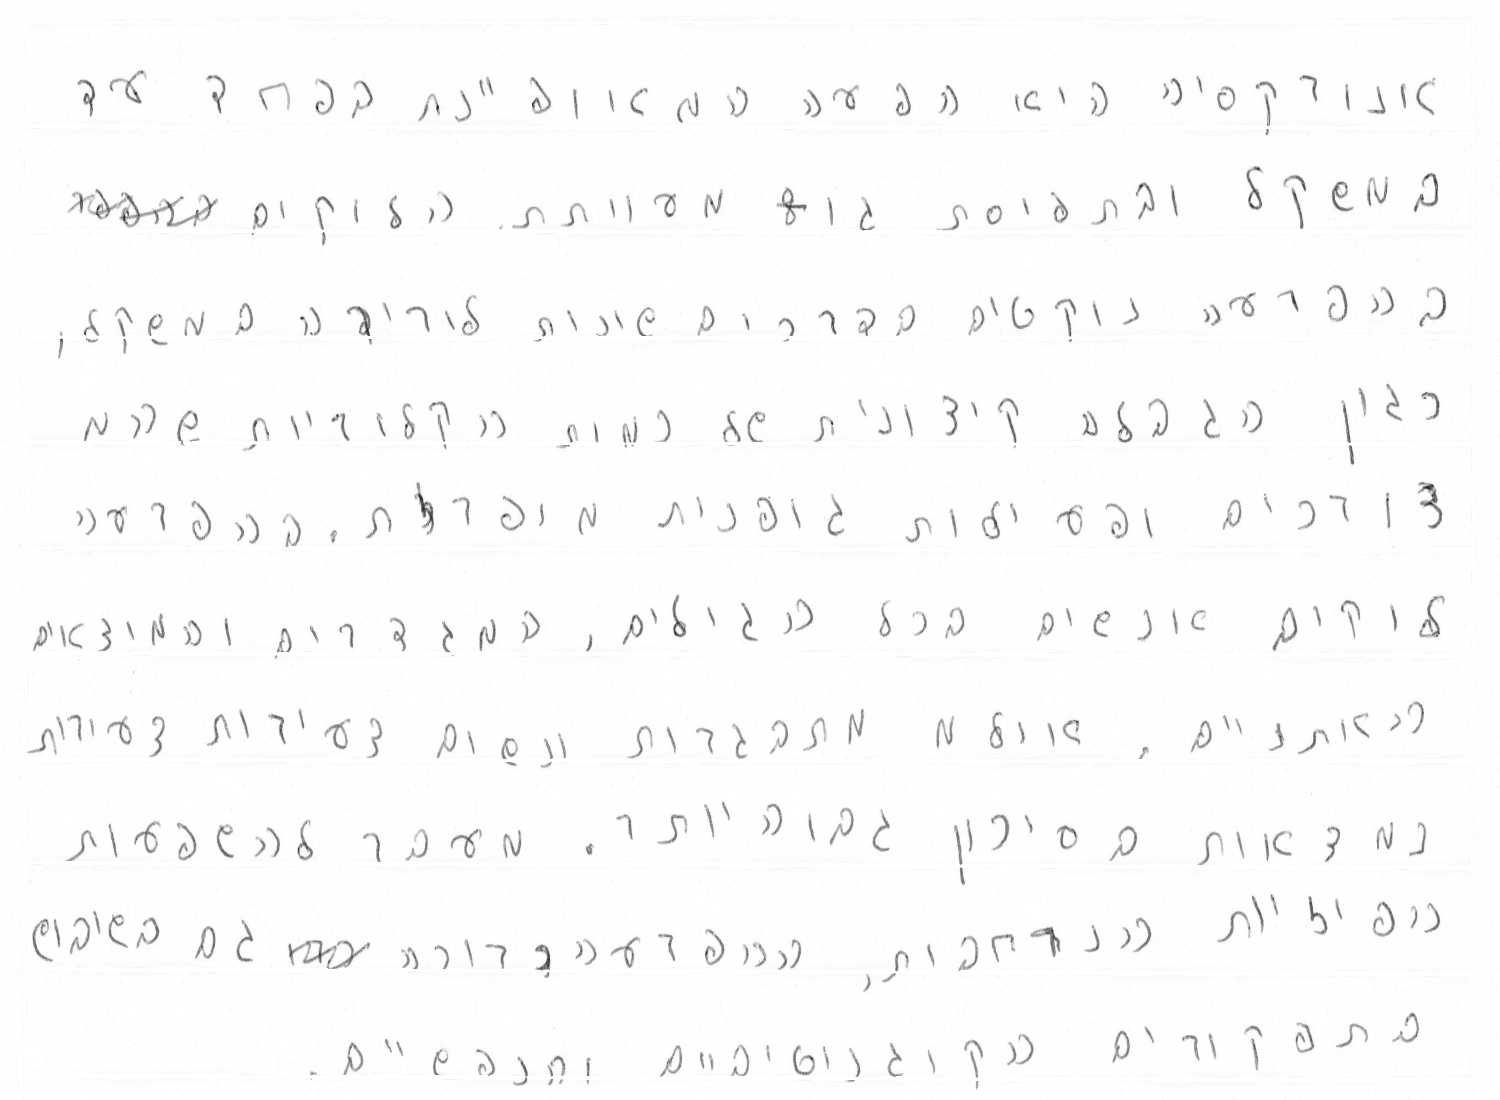 אנורקסיה היא הפעה המאופיינת בפחד עד
במשקל ובתפיסת גוף מעוותת. הלוקים
בהפרעה נוקטים בדרכים שונות לירידה במשקל,
כגון הגבלה קיצונית של כמות הקלוריות שהם
צורכים ופעילות גופנית מופרזת. בהפרעה
לוקים אנשים בכל הגילים, המגדרים והמוצאים
האתניים, אולם מתבגרות ונשים צעירות צעירות
נמצאות בסיכון גבוה יותר. מעבר להשפעות
הפיזיות הנרחבות, ההפרעה כרוכה גם בשיבוש
בתפקודים הקוגנטיביים והנפשיים.